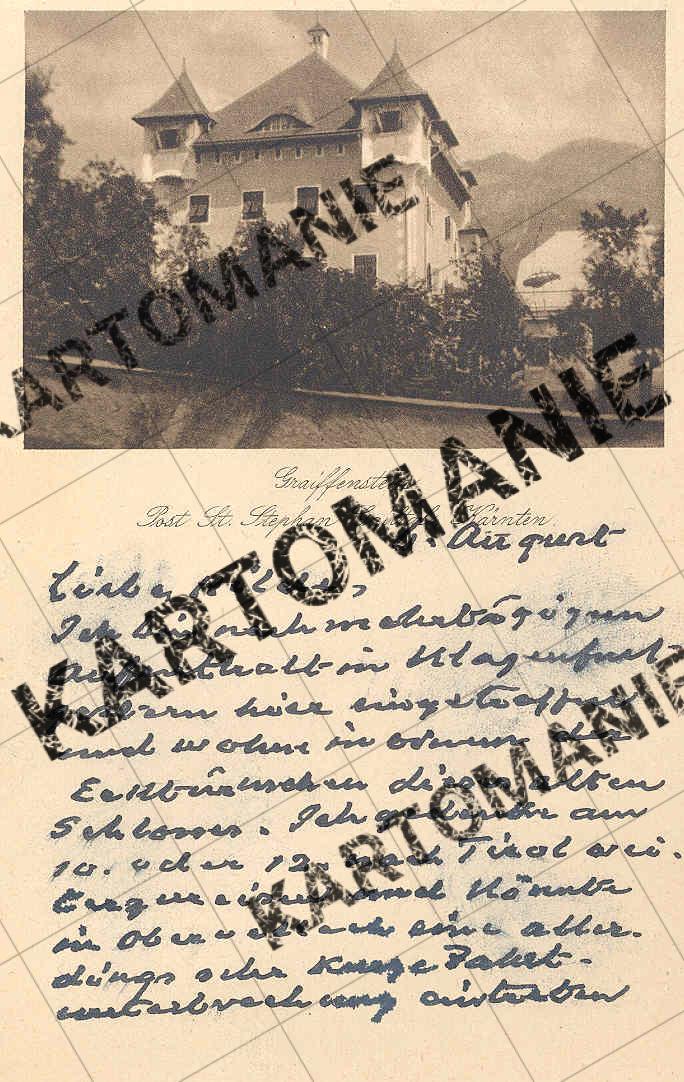 KARTOMANIE
Graiffenstein
Post St. Stephan Gailtal Kärnten.
KARTOMANIE
August
Liebe
Ich bin nach mehrtägigem
Aufenthalt in Klagenfurt
gestern hier eingetroffen
und wohne in einem der
Ecktürmchen dieses alten
Schlosses. Ich gedenke am
10. oder 12. nach Tirol wei-
KARTOMANIE
und könnte
in eine aller-
dings sehr kurze Fahrt-
unterbrechung eintreten